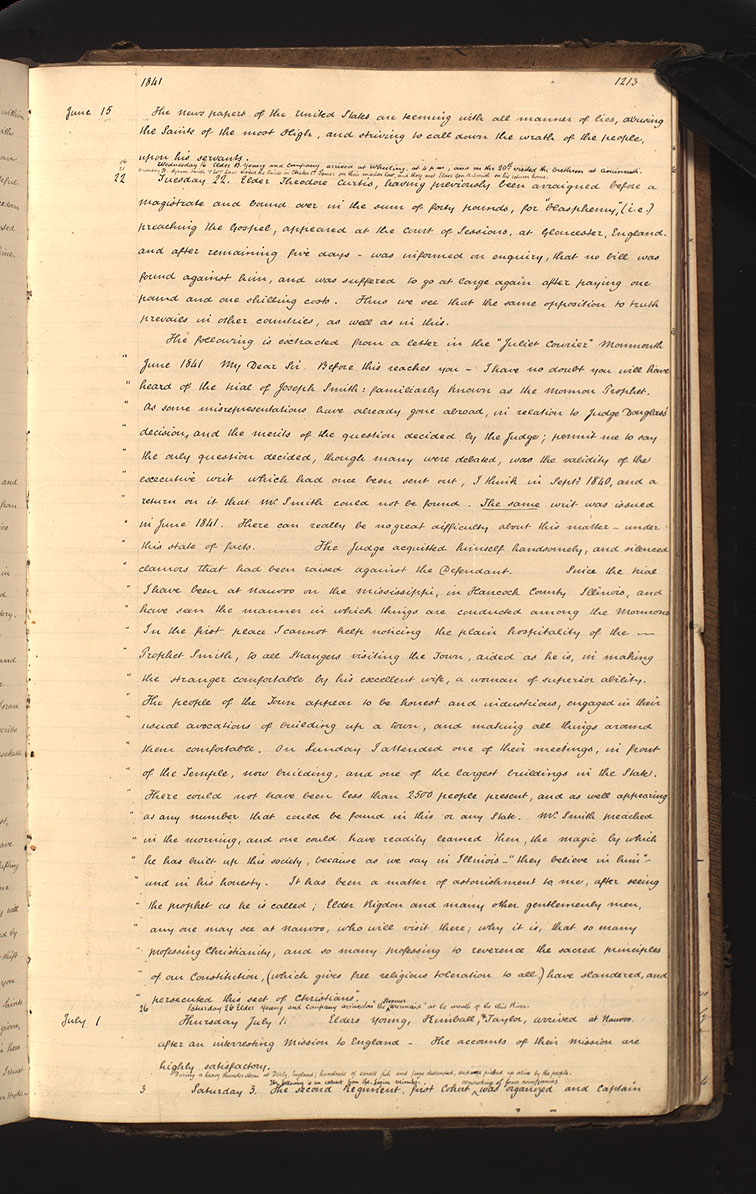 1841 1213
June 15 The news papers of the United States are teeming with all manner of lies, abusing
the Saints of the most High, and striving to call down the wrath of the people,
upon his servants.
16 Wednesday 16 Elder B. Young and Company arrived at Wheeling, at 4 p.m., and on the 20th visited the brethren at Cincinnati.
22 Tuesday 22. Elder Theodore Curtis, having previously been arraigned before a
magistrate and bound over in the sum of forty pounds, for "blasphemy," (i.e.)
preaching the Gospel, appeared at the Court of Sessions, at Gloucester, England.
and after remaining five days - was informed on enquiry, that no bill was
found against him, and was suffered to go at large again after paying one
pound and one shilling costs. Thus we see that the same opposition to truth
prevails in other countries, as well as in this.
The following is extracted from a letter in the "Juliet Courier" Monmouth
" June 1841 My Dear Sir. Before this reaches you - I have no doubt you will have
" heard of the trial of Joseph Smith: familiarly known as the Mormon Prophet.
" As some misrepresentations have already gone abroad, in relation to Judge Douglass'
" decision, and the merits of the question decided by the Judge; permit me to say
" the only question decided, though many were debated, was the validity of the
" executive writ which had once been sent out, I think in Sept: 1840, and a
" return on it that Mr. Smith could not be found. The same writ was issued
" in June 1841. There can really be no great difficulty about this matter - under
" this state of facts. The Judge acquitted himself handsomely, and silenced
" clamors that had been raised against the Defendant. Since the trial
" I have been at Nauvoo on the Mississippi, in Hancock County Illinois, and
" have seen the manner in which things are conducted among the Mormons
" In the first peace I cannot help noticing the plain hospitality of the —
" Prophet Smith, to all strangers visiting the Town, aided as he is, in making
" the stranger comfortable by his excellent wife, a woman of superior ability.
" The people of the Town appear to be honest and industrious, engaged in their
" usual avocations of building up a town, and making all things around
" them comfortable. On Sunday I attended one of their meetings, in front
" of the Temple, now building, and one of the largest buildings in the State.
" There could not have been less than 2500 people present, and as well appearing
" as any number that could be found in this or any State. Mr. Smith preached
" in the morning, and one could have readily learned then, the magic by which
" he has built up this society, because as we say in Illinois - "they believe in him" -
" and in his honesty. It has been a matter of astonishment to me, after seeing
" the prophet as he is called; Elder Rigdon and many other gentlemenly men,
" any one may see at Nauvoo, who will visit there; why it is, that so many
" professing Christianity, and so many professing to reverence the sacred principles
" of our Constitution, (which gives free religious toleration to all,) have slandered, and
" persecuted this sect of Christians".
26 Saturday 26 Elder Young and Company arrived on the Steamer "Mermaid" at the mouth of the Ohio River.
July 1 Thursday July 1. Elders Young, Kimball, & Taylor, arrived at Nauvoo.
after an interresting Mission to England - The accounts of their mission are
highly satisfactory.
During a heavy thunder storm at Derby, England; hundreds of small fish and frogs descended, and were picked up alive by the people.
The following is an extract from the Legion minutes:
3 Saturday 3. The second Regiment, first Cohort, consisting of four companies was organized and Captain